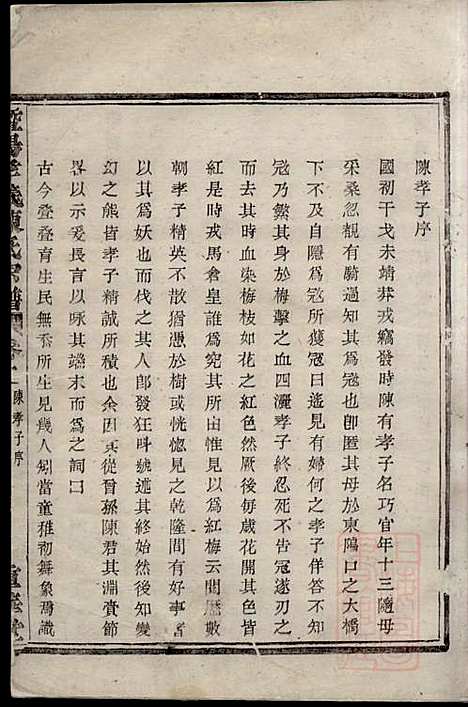 陳孝子序
國初干戈未靖莽戎竊發時陳有孝子名巧官年十三隨母
采桑忽覩有騎過知其爲寇也卽匿其母於東陽口之大橋
下不及自隱爲寇所獲寇曰遥見有婦何之孝子佯答不知
寇乃縶其身於梅擊之血四灑孝子終忍死不告寇遂刃之
而去其時血染梅枝如花之紅色然厥後每歲花開其色皆
紅是時戎馬倉皇誰爲究其所由惟見以紅梅云間歷數
朝孝子精英不散猶憑於樹或恍惚見之乾隆間有好事者
以其爲妖也而伐之其人卽發狂呌號述其終始然後知變
幻之態皆孝子精誠所積也余因其從晉孫陳君其淵賫節
畧以示爰長言以咏其端末而爲之詞曰
古今登登育生民無忝所生見幾人矧當童稚初舞象
陳孝子序